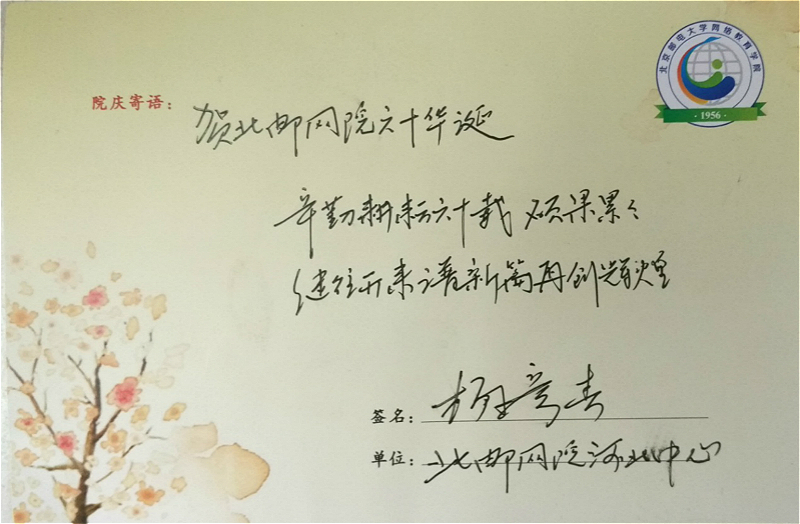 北京邮电大学网络教育学院
·1956·
院庆寄语：贺北邮网院六十华诞
辛勤耕耘六十载 硕果累々
继往开来谱新篇再创辉煌
签名：
单位：北邮网院河北中心